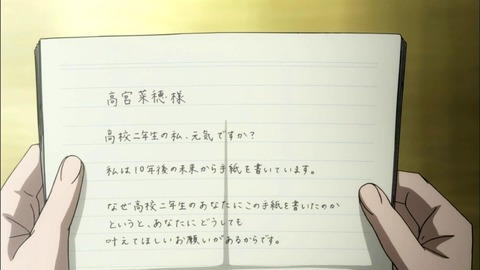 高宮菜穂様
高校二年生の私、元気ですか?
私は10年後の未来から手紙を書いています。
なぜ高校二年生のあなたにこの手紙を書いたのか
というと、あなたにどうしても
叶えてほしいお願いがあるからです。